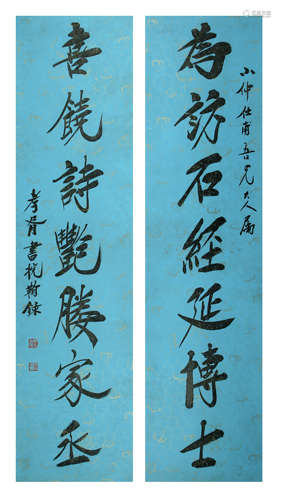 為訪石經延博士
小仲仕甫吾兄大人属
喜饒詩艷勝家丞
孝胥書